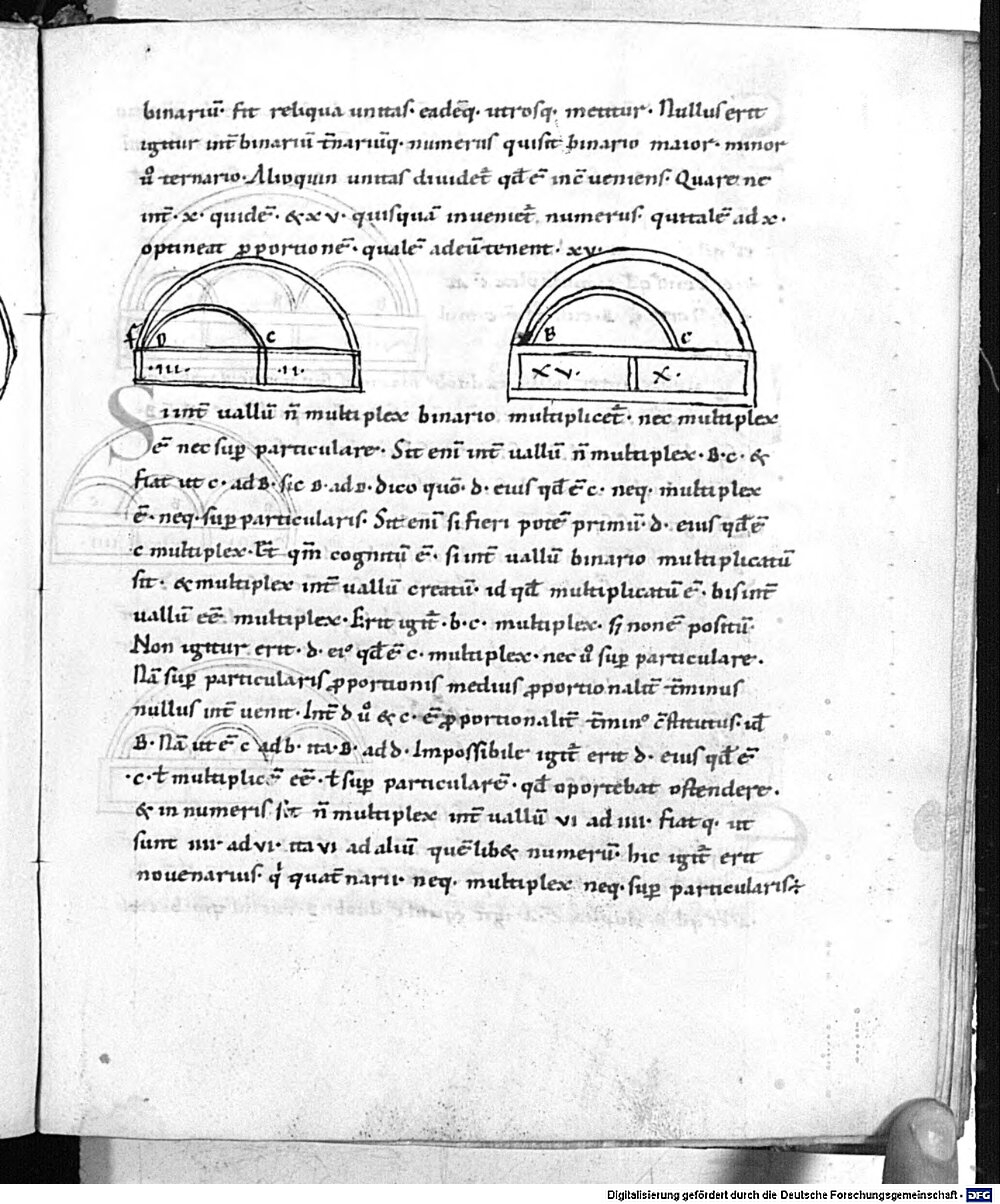 binariū· fit reliqua unitas· eadēq· utrosq· metitur· Nullus erit
igitur int̄ binariū t̄nariūq· numerus qui sit binario maior· minor
ů ternario· Alioquin unitas diuidet̄ qđ ē inc̄ueniens· Quare ne
int̄· x· quidē· & xv· quisquā inueniet̄ numerus· qui talē ad x·
optineat ꝓportionē· qualē ad eū tenent· xv·
f D C B C
·III· ·II· XV· X·
Si int̄uallū n̄ multiplex binario multiplicet̄· nec multiplex
ē nec suꝑparticulare· Sit eni int̄uallū n̄ multiplex· B· c· &
fiat ut c· ad B· sic B· ad D· dico quō· d· eius qđ ē c· neq· multiplex
ē· neq· suꝑparticularis· Sit eni si fieri potē primū· d· eius qđ ē
c multiplex· Et qm̄ cognitū ē· si int̄uallū binario multiplicatū
sit· & multiplex int̄uallū creatū· id qđ multiplicatū ē· bis int̄
uallū eē multiplex· Erit igit̄· b· c· multiplex· sꝫ non ē positū·
Non igitur erit· d· ei⁹ qđ ē c· multiplex· nec ů suꝑparticulare·
Nā suꝑparticularis ꝓportionis medius ꝓportionalit̄ t̄minus
nullus int̄uenit· Int̄ d ů & c· ē ꝓportionalit̄ t̄min⁹ c̄stitutus· id
B· Nā ut ē c ad b· ita· B· ad d· Impossibile igit̄ erit d· eius qđ ē
·c· ł multiplicē eē· ł suꝑparticularē· qđ oportebat ostendere·
& in numeris· sit n̄ multiplex int̄uallū VI ad IIII· fiatq· ut
sunt IIII· ad VI· ita VI ad aliū quēlib& numerū· hic igit̄ erit
nouenarius· q̇ quat̄narii· neq· multiplex neq· suꝑparticularis
Digitalisierung gefördert durch die Deutsche Forschungsgemeinschaft - DFG